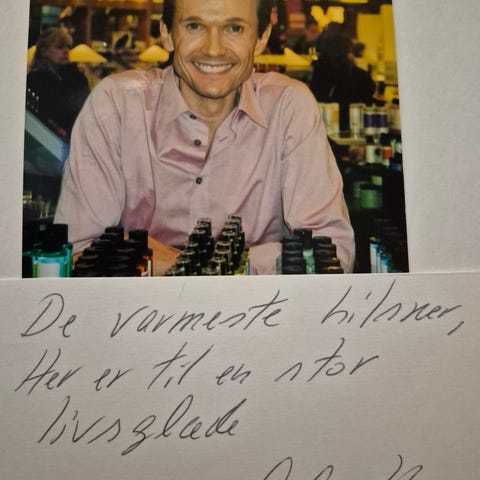 De varmeste hilsner,
Her er til en stor
livsglede